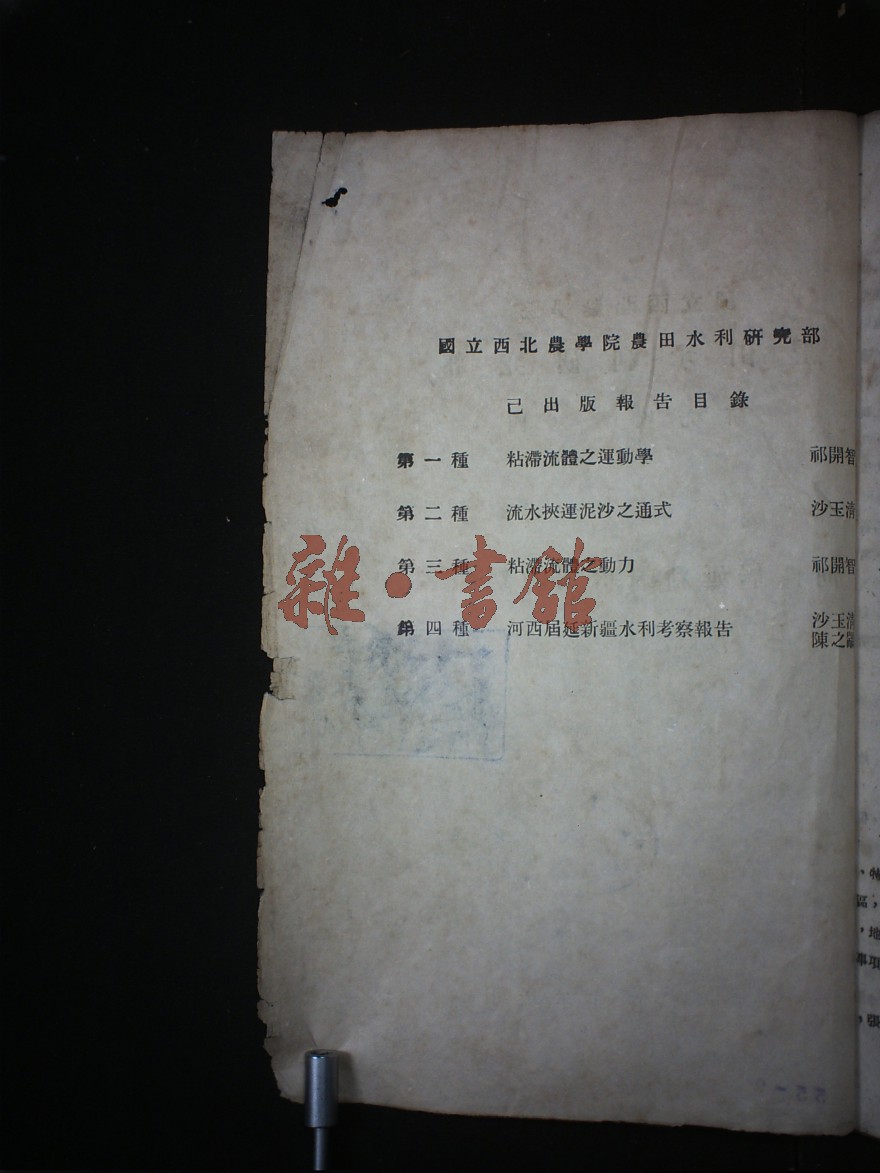 國立西北農學院農田水利研究部
已出版報告目錄
第一種 粘滯流體之運動學 祁開智
第二種 流水挾運泥沙之通式 沙玉清
第三種 粘滯流體之動力 祁開智
第四種 河西屆延新疆水利考察報告 沙玉清
陳之
雜·書館
、特
區，
，地
事項
，張